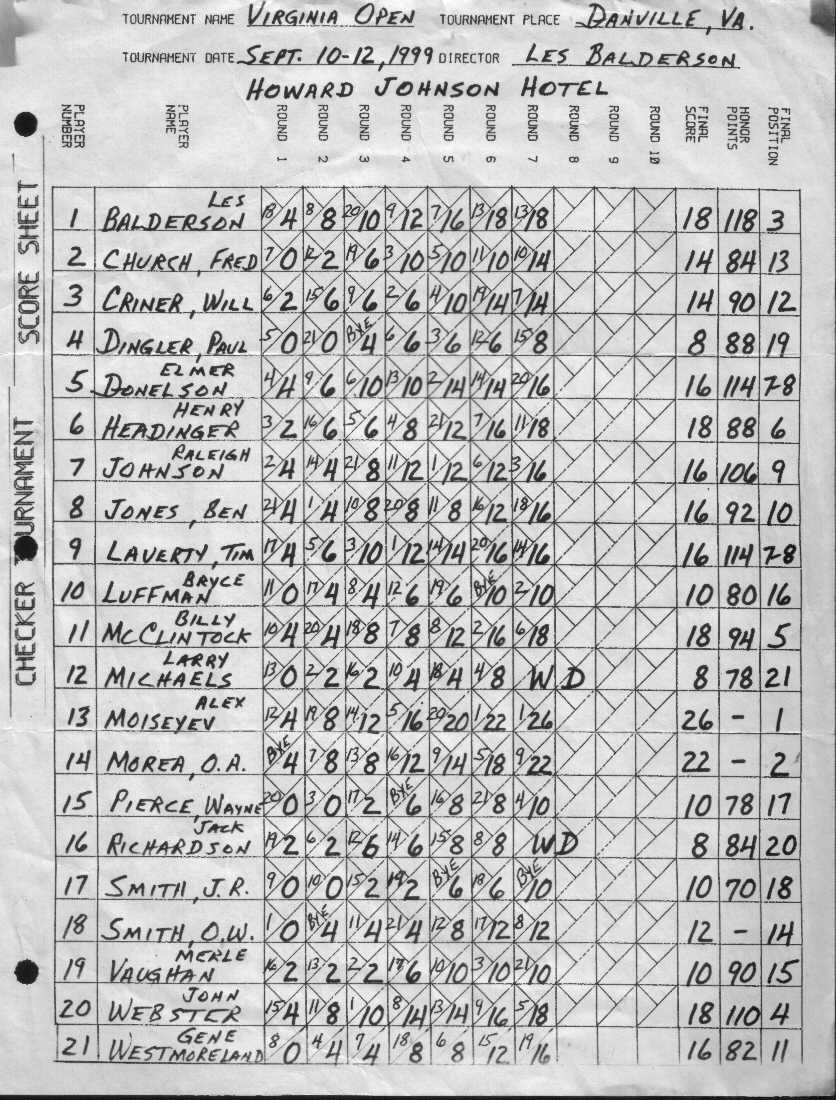 TOURNAMENT NAME VIRGINIA OPEN TOURNAMENT PLACE DANVILLE, VA.
TOURNAMENT DATE SEPT. 10-12, 1999 DIRECTOR LES BALDERSON
HOWARD JOHNSON HOTEL
CHECKER TOURNAMENT SCORE SHEET
PLAYER NUMBER PLAYER NAME ROUND 1 ROUND 2 ROUND 3 ROUND 4 ROUND 5 ROUND 6 ROUND 7 ROUND 8 ROUND 9 ROUND 10 FINAL SCORE HONOR POINTS FINAL POSITION
LES
1 BALDERSON 18/4 8/8 20/10 9/12 7/16 13/18 13/18 18 118 3
2 CHURCH, FRED 7/0 12/2 19/6 3/10 5/10 11/10 10/14 14 84 13
3 CRINER, WILL 6/2 15/6 9/6 2/6 4/10 19/14 7/14 14 90 12
4 DINGLER, PAUL 5/0 21/0 BYE/4 6/6 3/6 12/6 15/8 8 88 19
ELMER
5 DONELSON 4/4 9/6 6/10 13/10 2/14 14/14 20/16 16 114 7-8
HENRY
6 HEADINGER 3/2 16/6 5/6 4/8 21/12 7/16 11/18 18 88 6
RALEIGH
7 JOHNSON 2/4 14/4 21/8 11/12 1/12 6/12 3/16 16 106 9
8 JONES, BEN 21/4 1/4 10/8 20/8 11/8 16/12 18/16 16 92 10
9 LAVERTY, TIM 17/4 5/6 3/10 1/12 14/14 20/16 14/16 16 114 7-8
BRYCE
10 LUFFMAN 11/0 17/4 8/4 12/6 19/6 BYE/10 2/10 10 80 16
BILLY
11 MCCLINTOCK 10/4 20/4 18/8 7/8 8/12 2/16 6/18 18 94 5
LARRY
12 MICHAELS 13/0 2/2 16/2 10/4 18/4 4/8 WD 8 78 21
ALEX
13 MOISEYEV 12/4 19/8 14/12 5/16 20/20 1/22 1/26 26 - 1
14 MOREA, O.A. BYE/4 7/8 13/8 16/12 9/14 5/18 9/22 22 - 2
15 PIERCE, WAYNE 20/0 3/0 17/2 BYE/6 16/8 21/8 4/10 10 78 17
JACK
16 RICHARDSON 19/2 6/2 12/6 14/6 15/8 8/8 WD 8 84 20
17 SMITH, J.R. 9/0 10/0 15/2 19/2 BYE/6 18/6 BYE/10 10 70 18
18 SMITH, O.W. 1/0 BYE/4 11/4 21/4 12/8 17/12 8/12 12 - 14
MERLE
19 VAUGHAN 16/2 13/2 2/2 17/6 10/10 3/10 21/10 10 90 15
JOHN
20 WEBSTER 15/4 11/8 1/10 8/14 13/14 9/16 5/18 18 110 4
GENE
21 WESTMORELAND 8/0 4/4 7/4 18/8 6/8 15/12 19/16 16 82 11